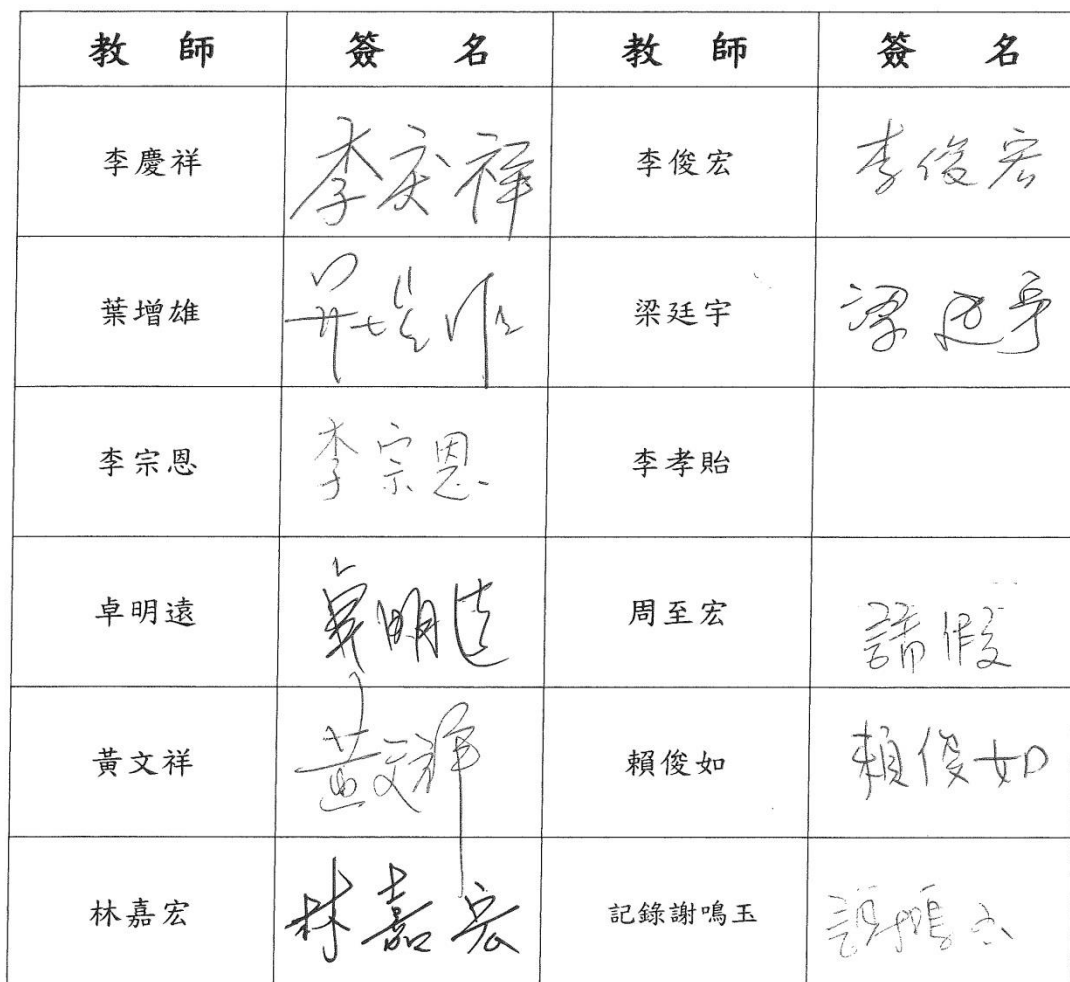 教 師 簽 名 教 師 簽 名
李慶祥 李庆祥 李俊宏 李俊宏
葉增雄 梁廷宇 梁廷宇
李宗恩 李宗恩 李孝貽
卓明遠 卓明遠 周至宏 請假
黃文祥 黃文祥 賴俊如 賴俊如
林嘉宏 林嘉宏 記錄謝鳴玉 謝鳴玉